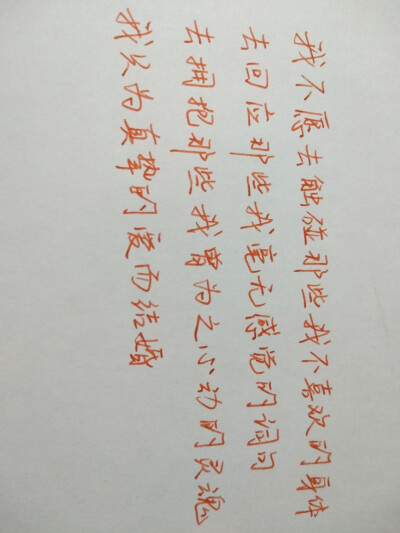 我不愿去触碰那些我不喜欢的身体
去回应那些我毫无感觉的词句
去拥抱那些我曾为之心动的灵魂
我只为真挚的爱而结婚